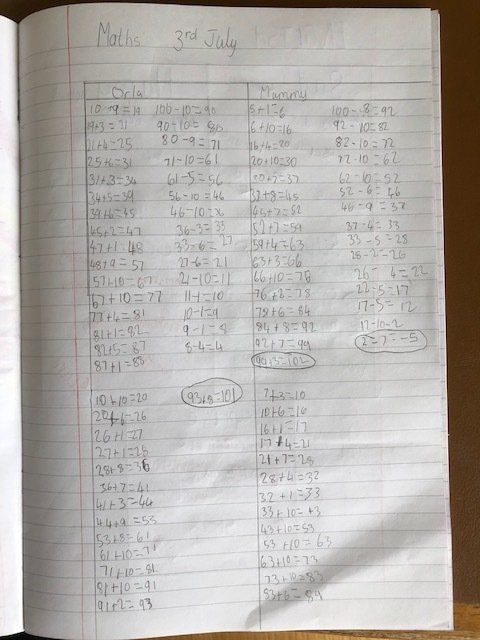 Maths 3rd July
Orla Mummy
10+9=19 100-10=90 5+1=6 100-8=92
19+3=21 90-10=80 6+10=16 92-10=82
21+4=25 80-9=71 16+4=20 82-10=72
25+6=31 71-10=61 20+10=30 72-10=62
31+3=34 61-5=56 30+7=37 62-10=52
34+5=39 56-10=46 37+8=45 52-6=46
39+6=45 46-10=36 45+7=52 46-9=37
45+2=47 36-3=33 52+7=59 37-4=33
47+1=48 33-6=27 59+4=63 33-5=28
48+9=57 27-6=21 63+3=66 28-2=26
57+10=67 21-10=11 66+10=76 26-4=22
67+10=77 11-1=10 76+2=78 22-5=17
77+4=81 10-1=9 78+6=84 17-5=12
81+1=82 9-1=8 84+8=92 12-10=2
82+5=87 8-4=4 92+7=99 2-7=-5
87+1=88 99+3=102
10+10=20 93+8=101 7+3=10
20+6=26 10+6=16
26+1=27 16+1=17
27+1=28 17+4=21
28+8=36 21+7=28
36+7=41 28+4=32
41+3=44 32+1=33
44+9=53 33+10=43
53+8=61 43+10=53
61+10=71 53+10=63
71+10=81 63+10=73
81+10=91 73+10=83
91+2=93 83+6=89